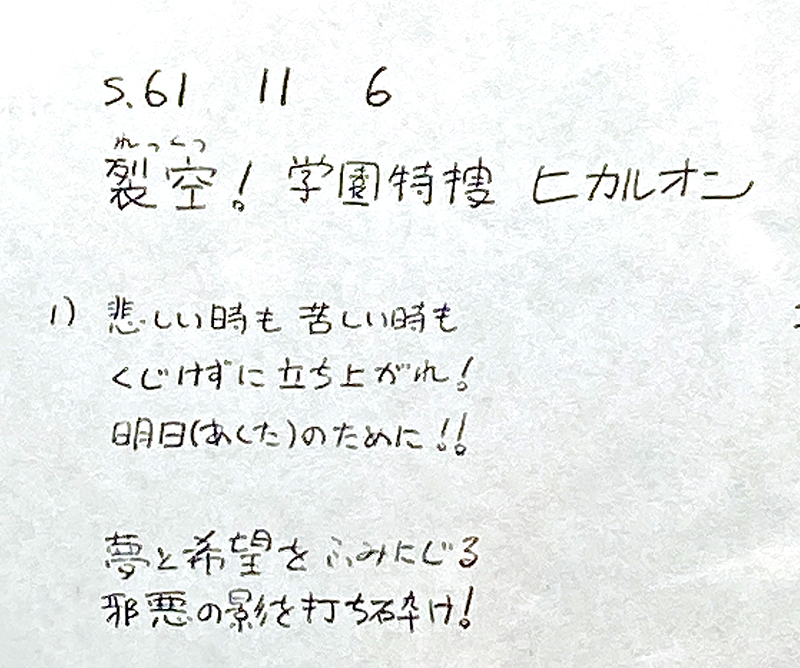 S.61 11 6
れっくう
裂空! 学園特捜 ヒカルオン
1) 悲しい時も 苦しい時も
くじけずに立ち上がれ!
明日(あした)のために!!
夢と希望をふみにじる
邪悪の影を打ち砕け!